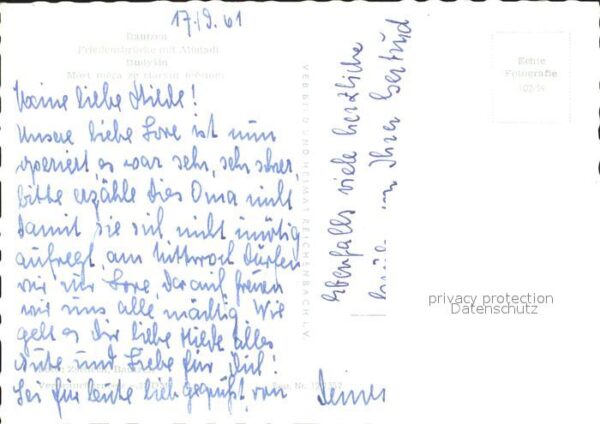 17./9.61
Bautzen
Friedensbrücke mit Altstadt
Budyšin
Móst měra ze starym městom
Meine liebe Hilde!
Unsere liebe Lore ist nun
operiert, es war sehr, sehr schwer,
bitte erzähle dies Oma nicht
damit sie sich nicht unnötig
aufregt, am Mittwoch dürfen
wir zur Lore, darauf freuen
wir uns alle mächtig. Wie
geht es Dir liebe Hilde alles
Gute und Liebe für Dich!
Sei für heute lieb gegrüßt von
Deiner
Ebenfalls viele herzliche
Ihrer Gertrud
VEB BILD UND HEIMAT REICHENBACH I. V.
Echte
Fotografie
privacy protection
Datenschutz